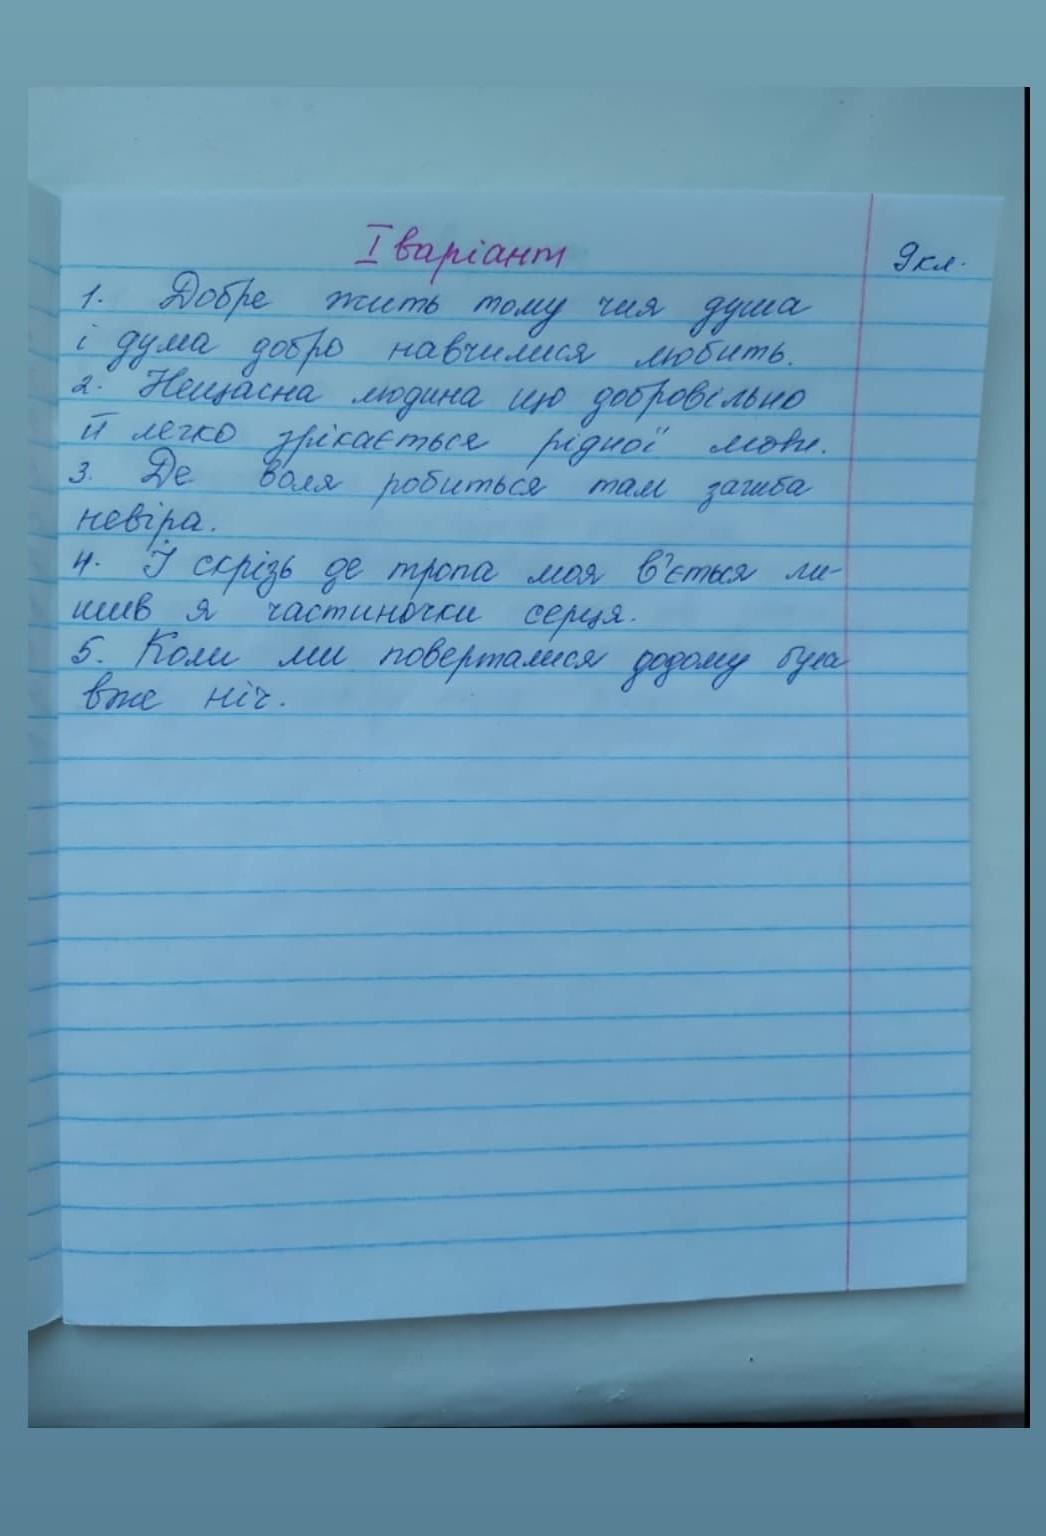 І варіант
9 кл.
1. Добре жить тому чия душа
і дума добро навчилися любить.
2. Нещасна людина що добровільно
й легко зрікається рідної мови.
3. Де воля робиться там загиба
невіра.
4. І скрізь де тропа моя в'ється ли-
шив я частиночки серця.
5. Коли ми поверталися додому була
вже ніч.